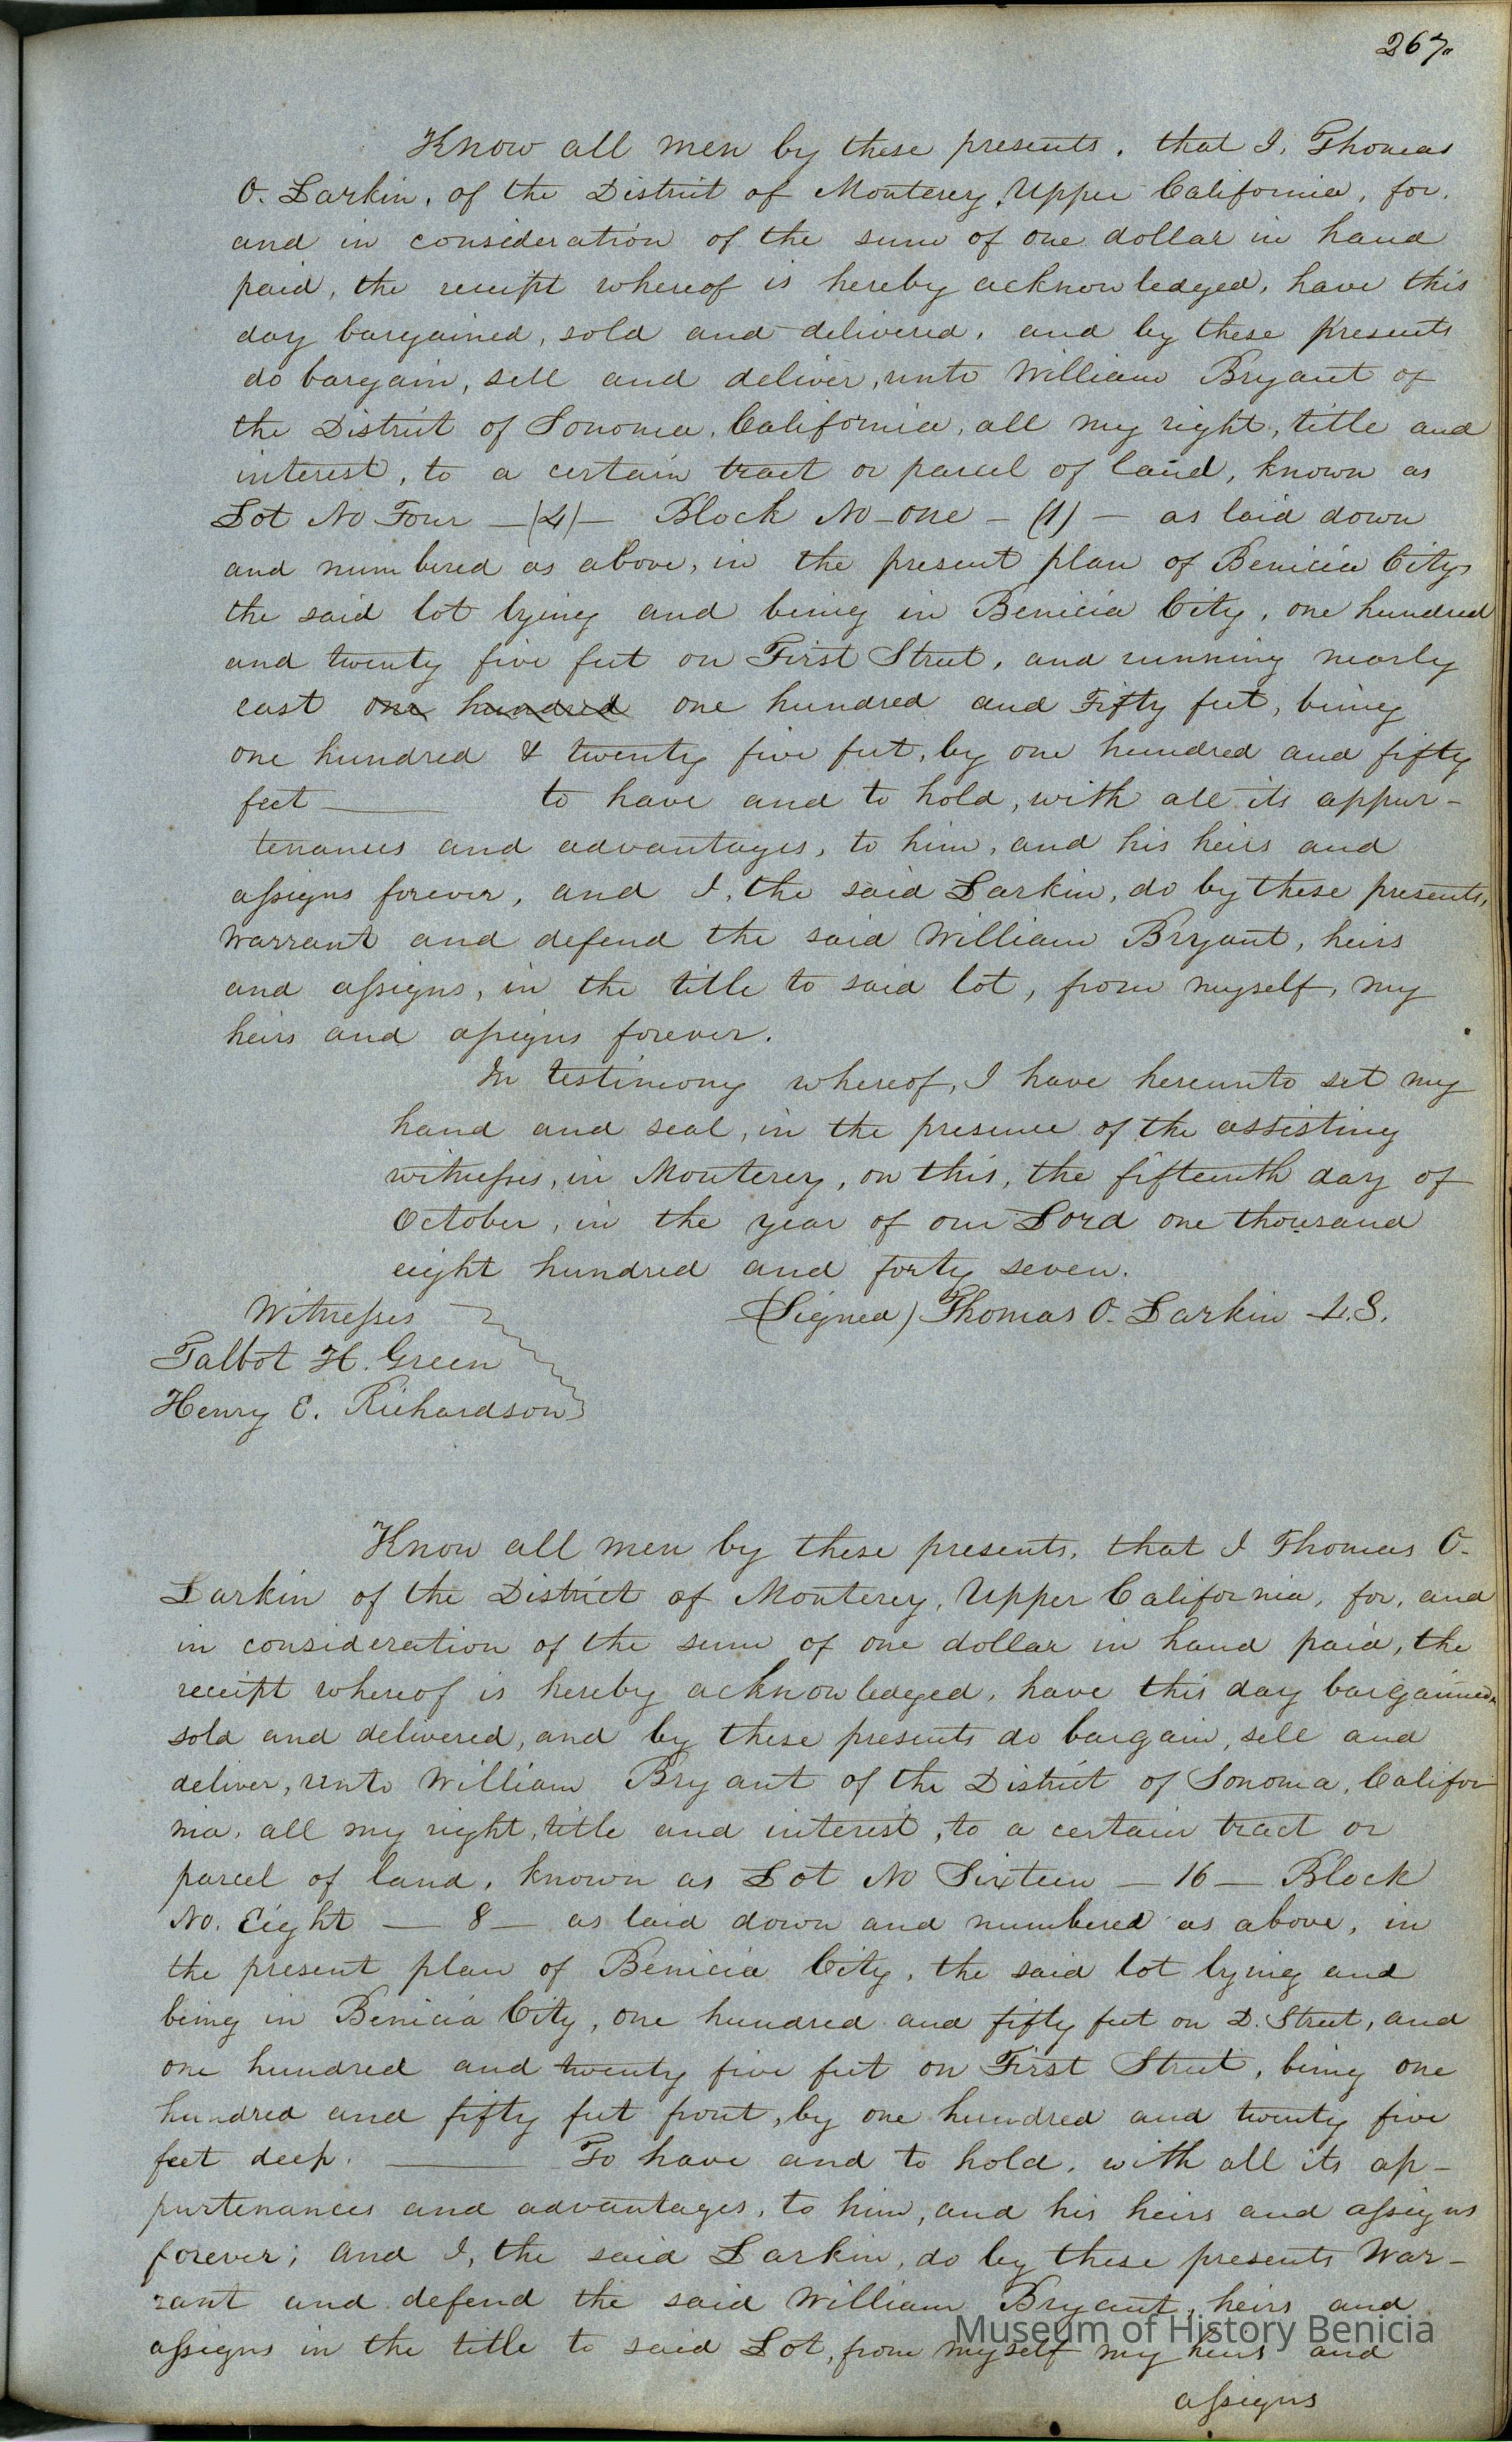 267.
Know all men by these presents, that I, Thomas
O. Larkin, of the District of Monterey, Upper California, for,
and in consideration of the sum of one dollar in hand
paid, the receipt whereof is hereby acknowledged, have this
day bargained, sold and delivered, and by these presents
do bargain, sell and deliver, unto William Bryant of
the District of Sonoma, California, all my right, title and
interest, to a certain tract or parcel of land, known as
Lot No Four —(4)— Block No—one — (1) — as laid down
and numbered as above, in the present plan of Benicia City,
the said lot lying and being in Benicia City, one hundred
and twenty five feet on First Street, and running nearly
east one hundred one hundred and Fifty feet, being
one hundred & twenty five feet, by one hundred and fifty
feet ——— to have and to hold, with all its appur-
tenances and advantages, to him, and his heirs and
assigns forever, and I, the said Larkin, do by these presents,
warrant and defend the said William Bryant, heirs
and assigns, in the title to said lot, from myself, my
heirs and assigns forever.
In testimony whereof, I have hereunto set my
hand and seal, in the presence of the assisting
witnesses, in Monterey, on this, the fifteenth day of
October, in the year of our Lord one thousand
eight hundred and forty seven.
Witnesses (Signed) Thomas O. Larkin L.S.
Talbot H. Green
Henry E. Richardson
Know all men by these presents, that I Thomas O.
Larkin of the District of Monterey, Upper California, for, and
in consideration of the sum of one dollar in hand paid, the
receipt whereof is hereby acknowledged, have this day bargained,
sold and delivered, and by these presents do bargain, sell and
deliver, unto William Bryant of the District of Sonoma, Califor
nia, all my right, title and interest, to a certain tract or
parcel of land, known as Lot No Sixteen — 16 — Block
No. Eight — 8 — as laid down and numbered as above, in
the present plan of Benicia City, the said lot lying and
being in Benicia City, one hundred and fifty feet on D. Street, and
one hundred and twenty five feet on First Street, being one
hundred and fifty feet front, by one hundred and twenty five
feet deep. ——— To have and to hold, with all its ap-
purtenances and advantages, to him, and his heirs and assigns
forever; and I, the said Larkin, do by these presents War-
rant and defend the said William Bryant, heirs and
assigns in the title to said Lot, from myself my heirs and
assigns
Museum of History Benicia